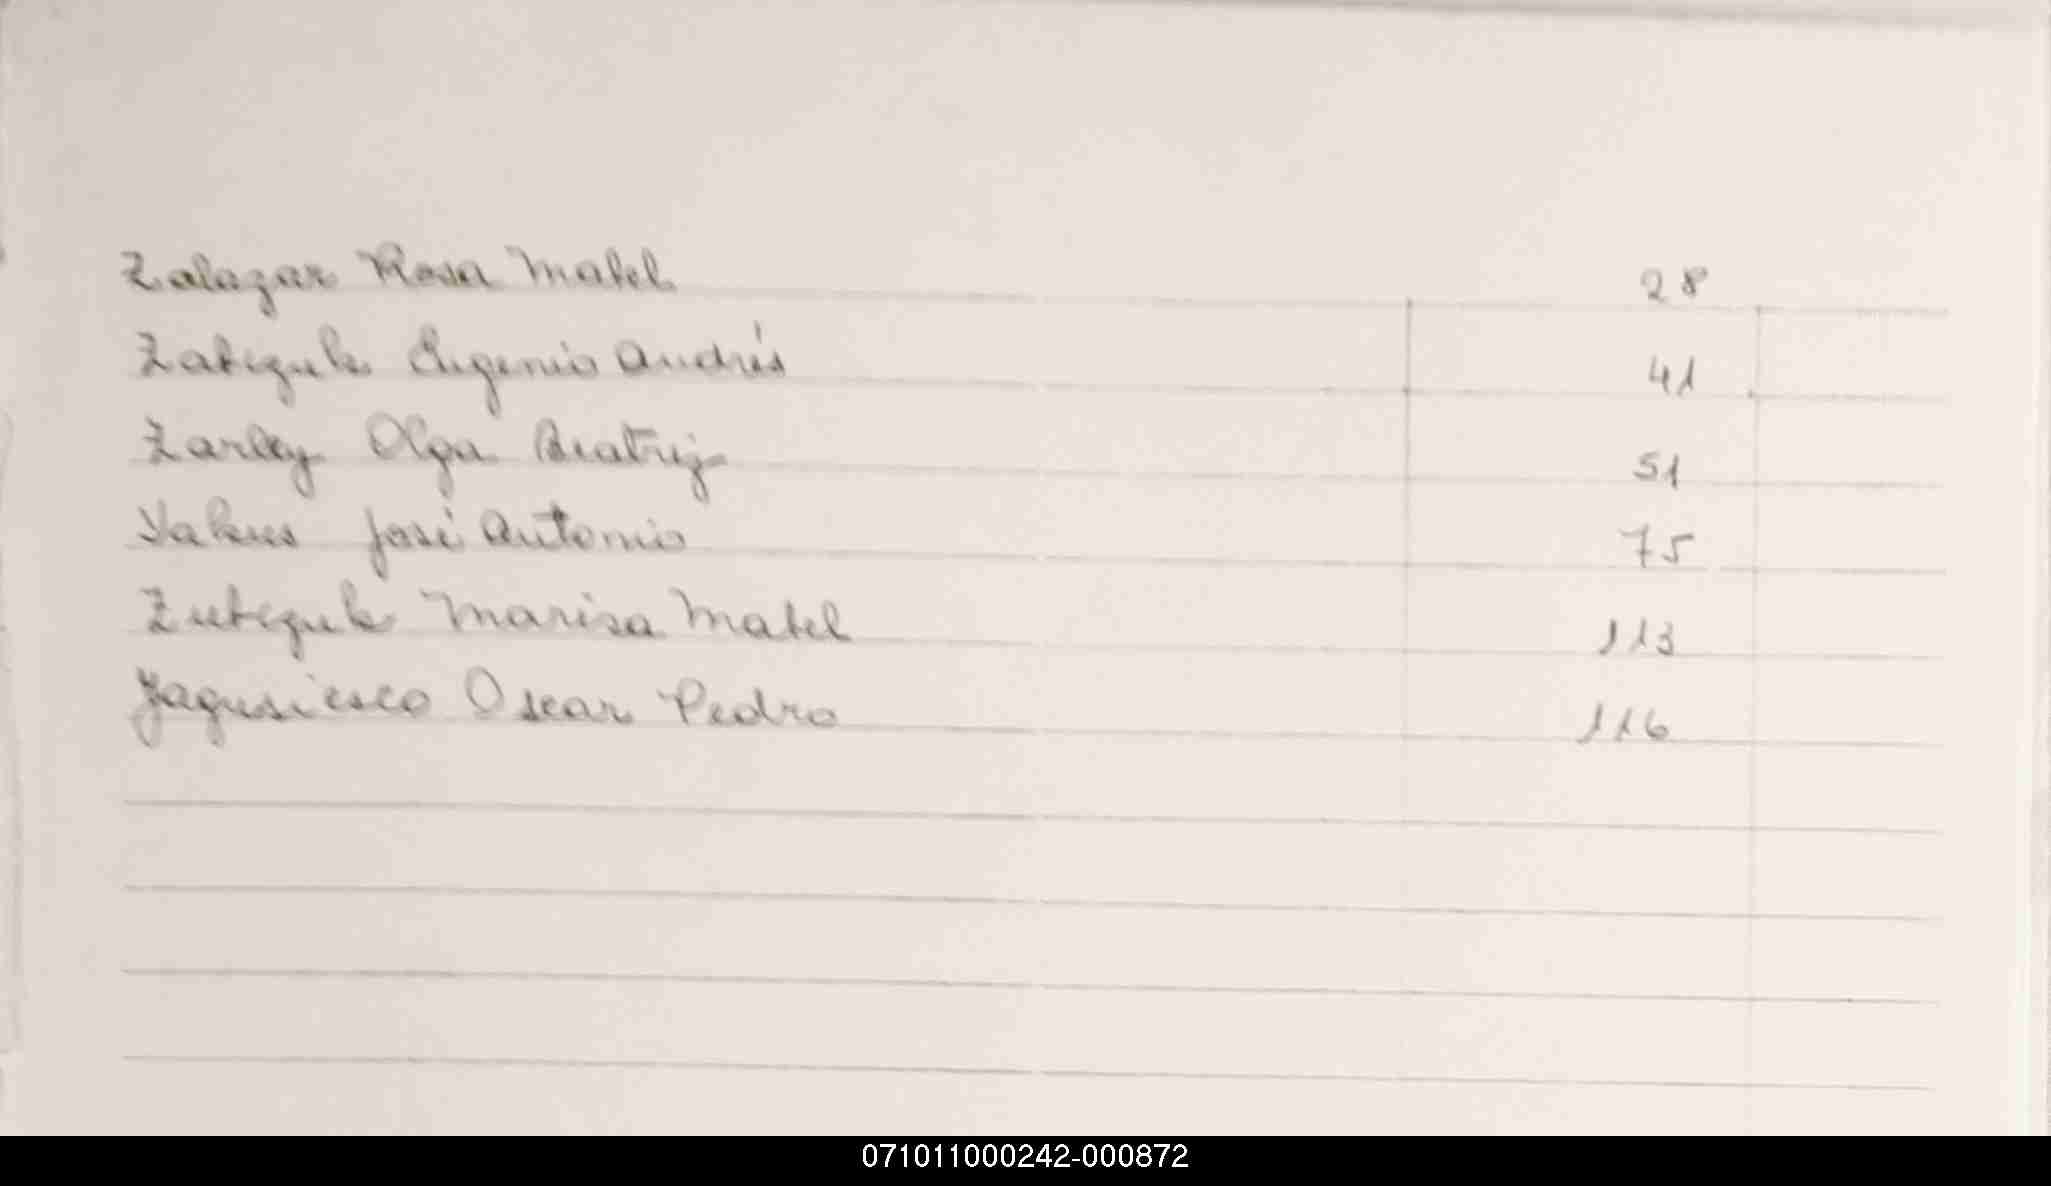 Zalazar Rosa Mabel 28
Eugenio Andrés 41
Olga Beatriz 51
José Antonio 75
Marisa Mabel 113
Oscar Pedro 116
071011000242-000872